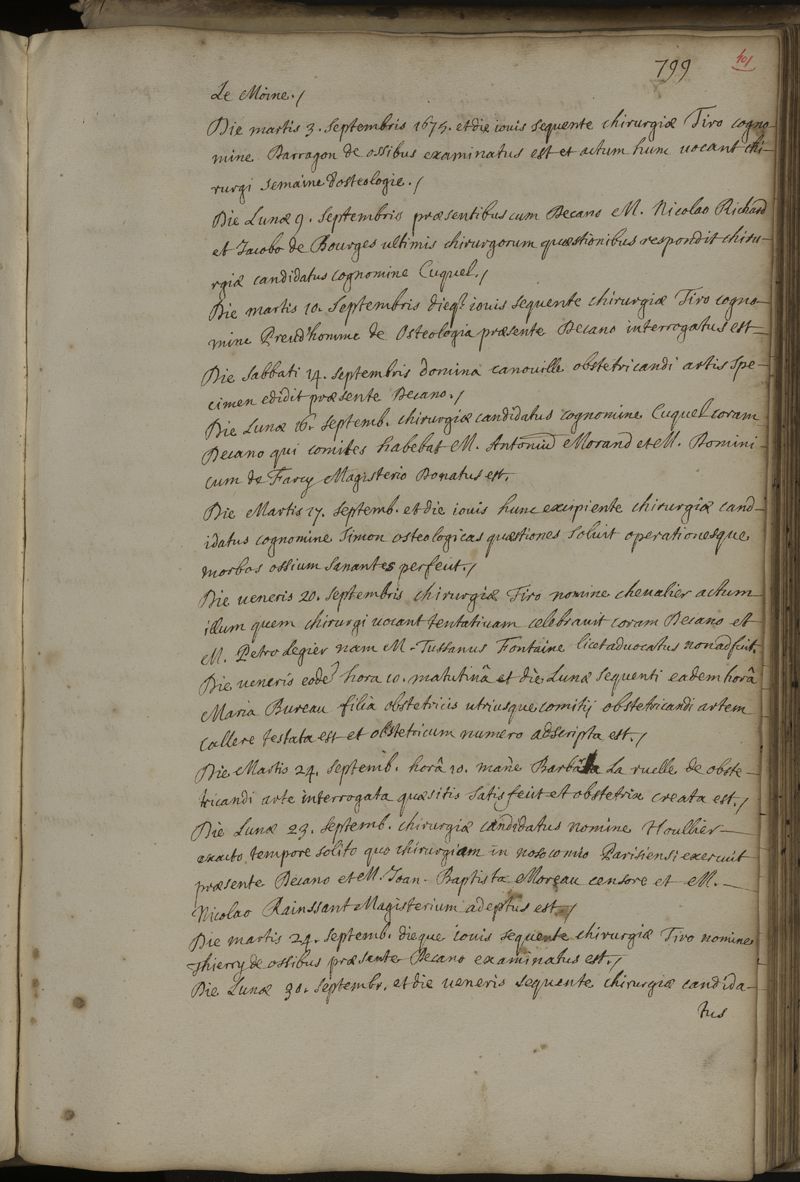 799
401
Le Moine./
Die martis 3. Septembris 1675. et die iouis sequente chirurgiæ Tiro cogno-
mine Barragon de ossibus examinatus est et actum hunc uocant chi-
rurgi semaine d'osteologie./
Die Lunæ 9. Septembris præsentibus cum Decano M. Nicolao Richard
et Jacobo de Bourges ultimis chirurgorum quæstionibus respondit chiru-
rgiæ candidatus cognomine Cuquel./
Die martis 10. Septembris dieq; iouis sequente chirurgiæ Tiro cogno-
mine Preud'homme de Osteologia præsente Decano interrogatus est
Die Sabbati 14. Septembris domina canouille obstetricandi artis spe-
cimen edidit præsente Decano./
Die Lunæ 16. Septemb. chirurgiæ candidatus cognomine Cuquel coram
Decano qui comites habebat M. Antoniū Morand et M. Domini-
cum de Farcy Magisterio Donatus est.
Die Martis 17. Septemb. et die iouis hunc excipiente chirurgiæ cand-
idatus cognomine Simon osteologicas quæstiones soluit operationesque
morbos ossium sanantes perfecit./
Die ueneris 20. Septembris chirurgiæ Tiro nomine cheualier actum
illum quem chirurgi uocant tentatiuam celebrauit coram Decano et
M. Petro Legier nam M. Tussanus Fontaine licet aduocatus non adfuit.
Die ueneris eodē hora 10. matutinâ et die Lunæ sequenti eadem horâ
Maria Bureau filia obstetricis utriusque comitij obstetricandi artem
callere testata est et obstetricum numero adscripta est./
Die Martis 24. Septemb. horâ 10. mane Barbara La ruelle de obste-
tricandi arte interrogata quæsitis satisfecit et obstetrix creata est./
Die Lunæ 23. Septemb. chirurgiæ candidatus nomine Houllier
exacto tempore solito quo chirurgiam in nosocomio Parisiensi exercuit
præsente Decano et M. Joan-Baptista Moreau censore et M.
Nicolao Rainssant Magisterium adeptus est./
Die martis 24. Septemb. dieque iouis sequente chirurgiæ Tiro nomine
Thierry de ossibus præsente Decano examinatus est./
Die Lunæ 30. Septembr. et die ueneris sequente chirurgiæ candida-
tus